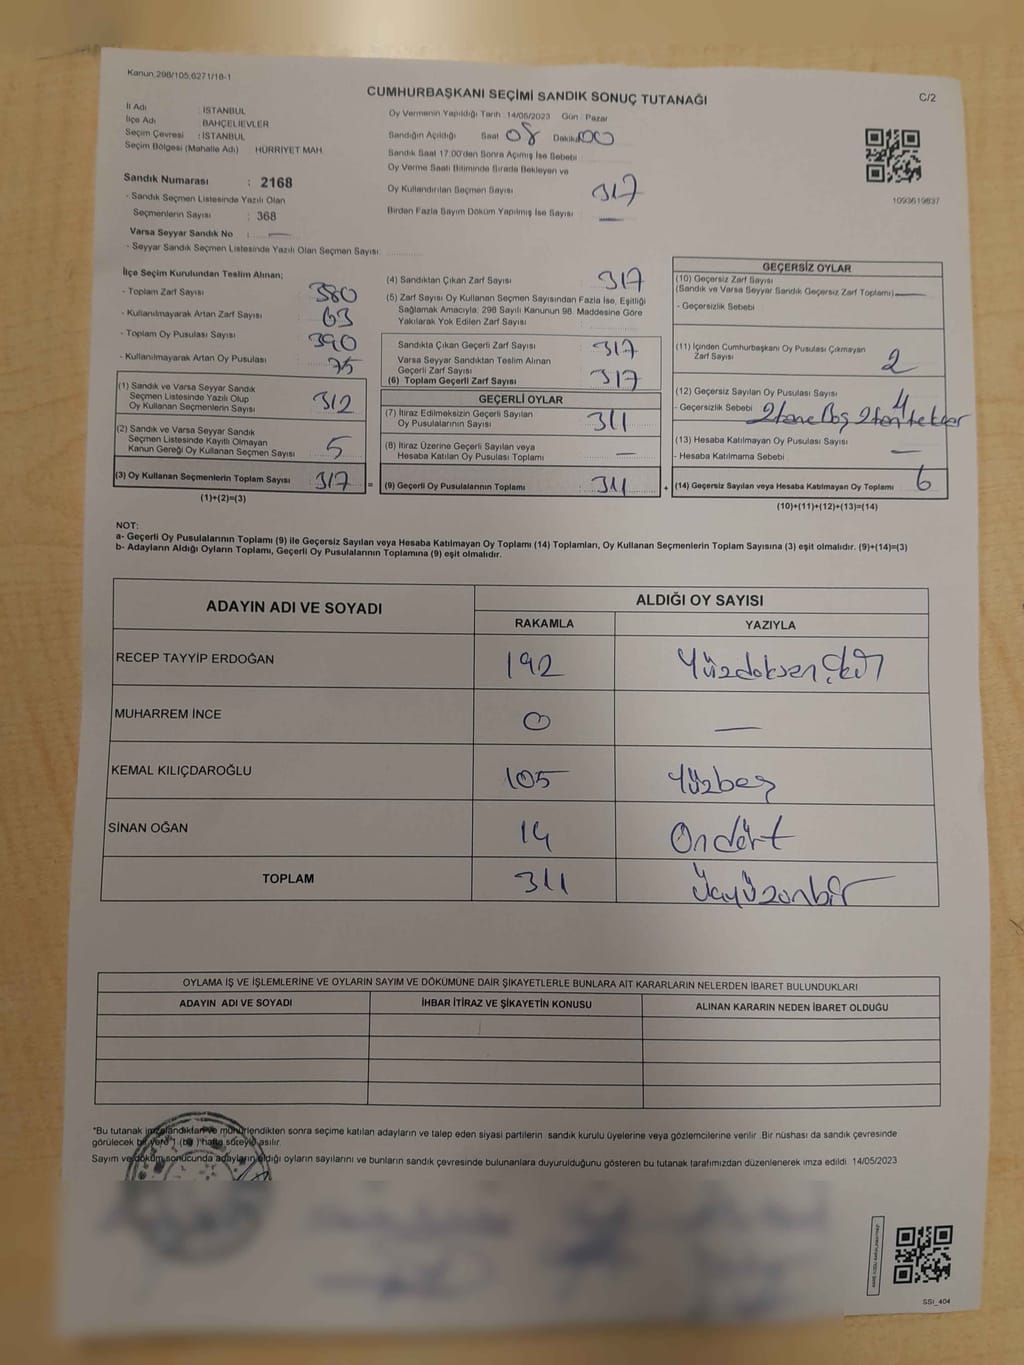 Kanun 298/105,6271/18-1
CUMHURBAŞKANI SEÇİMİ SANDIK SONUÇ TUTANAĞI
C/2
İl Adı : İSTANBUL
İlçe Adı : BAHÇELİEVLER
Seçim Çevresi : İSTANBUL
Seçim Bölgesi (Mahalle Adı) : HÜRRİYET MAH.
Sandık Numarası : 2168
- Sandık Seçmen Listesinde Yazılı Olan
Seçmenlerin Sayısı : 368
Varsa Seyyar Sandık No : —
- Seyyar Sandık Seçmen Listesinde Yazılı Olan Seçmen Sayısı:
Oy Vermenin Yapıldığı Tarih : 14/05/2023 Gün : Pazar
Sandığın Açıldığı Saat 08 Dakika 00
Sandık Saat 17:00'den Sonra Açılmış İse Sebebi
Oy Verme Saati Bitiminde Sırada Bekleyen ve
Oy Kullandırılan Seçmen Sayısı 317
Birden Fazla Sayım Döküm Yapılmış İse Sayısı —
1093619837
İlçe Seçim Kurulundan Teslim Alınan;
- Toplam Zarf Sayısı 380
- Kullanılmayarak Artan Zarf Sayısı 63
- Toplam Oy Pusulası Sayısı 390
- Kullanılmayarak Artan Oy Pusulası 75
(1) Sandık ve Varsa Seyyar Sandık
Seçmen Listesinde Yazılı Olup
Oy Kullanan Seçmenlerin Sayısı 312
(2) Sandık ve Varsa Seyyar Sandık
Seçmen Listesinde Kayıtlı Olmayan
Kanun Gereği Oy Kullanan Seçmen Sayısı 5
(3) Oy Kullanan Seçmenlerin Toplam Sayısı 317 =
(1)+(2)=(3)
(4) Sandıktan Çıkan Zarf Sayısı 317
(5) Zarf Sayısı Oy Kullanan Seçmen Sayısından Fazla İse, Eşitliği
Sağlamak Amacıyla; 298 Sayılı Kanunun 98. Maddesine Göre
Yakılarak Yok Edilen Zarf Sayısı
Sandıkta Çıkan Geçerli Zarf Sayısı 317
Varsa Seyyar Sandıktan Teslim Alınan
Geçerli Zarf Sayısı
(6) Toplam Geçerli Zarf Sayısı 317
GEÇERLİ OYLAR
(7) İtiraz Edilmeksizin Geçerli Sayılan
Oy Pusulalarının Sayısı 311
(8) İtiraz Üzerine Geçerli Sayılan veya
Hesaba Katılan Oy Pusulası Toplamı —
(9) Geçerli Oy Pusulalarının Toplamı 311 +
GEÇERSİZ OYLAR
(10) Geçersiz Zarf Sayısı
(Sandık ve Varsa Seyyar Sandık Geçersiz Zarf Toplamı) —
- Geçersizlik Sebebi
(11) İçinden Cumhurbaşkanı Oy Pusulası Çıkmayan
Zarf Sayısı 2
(12) Geçersiz Sayılan Oy Pusulası Sayısı 4
- Geçersizlik Sebebi 2 tane Boş 2 tane
(13) Hesaba Katılmayan Oy Pusulası Sayısı —
- Hesaba Katılmama Sebebi
(14) Geçersiz Sayılan veya Hesaba Katılmayan Oy Toplamı 6
(10)+(11)+(12)+(13)=(14)
NOT:
a- Geçerli Oy Pusulalarının Toplamı (9) ile Geçersiz Sayılan veya Hesaba Katılmayan Oy Toplamı (14) Toplamları, Oy Kullanan Seçmenlerin Toplam Sayısına (3) eşit olmalıdır. (9)+(14)=(3)
b- Adayların Aldığı Oyların Toplamı, Geçerli Oy Pusulalarının Toplamına (9) eşit olmalıdır.
ADAYIN ADI VE SOYADI
ALDIĞI OY SAYISI
RAKAMLA YAZIYLA
RECEP TAYYİP ERDOĞAN 192 Yüzdoksan iki
MUHARREM İNCE 0 —
KEMAL KILIÇDAROĞLU 105 Yüzbeş
SİNAN OĞAN 14 Ondört
TOPLAM 311 Üçyüzonbir
OYLAMA İŞ VE İŞLEMLERİNE VE OYLARIN SAYIM VE DÖKÜMÜNE DAİR ŞİKAYETLERLE BUNLARA AİT KARARLARIN NELERDEN İBARET BULUNDUKLARI
ADAYIN ADI VE SOYADI İHBAR İTİRAZ VE ŞİKAYETİN KONUSU ALINAN KARARIN NEDEN İBARET OLDUĞU
*Bu tutanak imzalandıktan ve mühürlendikten sonra seçime katılan adayların ve talep eden siyasi partilerin sandık kurulu üyelerine veya gözlemcilerine verilir. Bir nüshası da sandık çevresinde
görülecek bir yere 1 (bir) hafta süreyle asılır.
Sayım ve döküm sonucunda adayların aldığı oyların sayılarını ve bunların sandık çevresinde bulunanlara duyurulduğunu gösteren bu tutanak tarafımızdan düzenlenerek imza edildi. 14/05/2023
SSİ_404